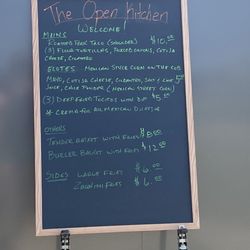 The Open Kitchen
WELCOME!
MAINS
ROASTED PORK TACO (SHOULDER) $10.00
(3) FLOUR TORTILLAS, PICKLED ONIONS, COTIJA
CHEESE, CILANTRO
ELOTES - MEXICAN STYLE CORN ON THE COB
MAYO, COTIJA CHEESE, CILANTRO, SALT / LIME $5.00
JUICE, CHILE POWDER (MEXICAN STREET CORN)
(3) DEEP FRIED TAQUITOS WITH DIP $5.00
* CREMA FOR ALL MEXICAN DISHES *
OTHERS
TENDER BASKET WITH FRIES $8.00
BURGER BASKET WITH FRIES $12.00
SIDES LARGE FRIES $6.00
ZUCCHINI FRIES $6.00